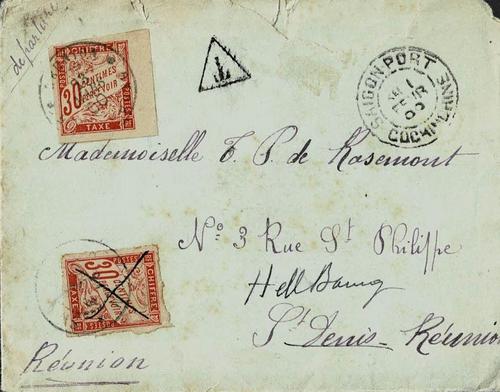 de partout
CHIFFRE
POSTES
30 CENTIMES
A PERCEVOIR
TAXE
T
SAIGON PORT
1
FEVR
00
COCHINCHINE
Mademoiselle T. P. de Rosemont
N° 3 Rue St Philippe
Hell Bourg
St Denis - Réunion
POSTES
CHIFFRE
30
TAXE
Réunion